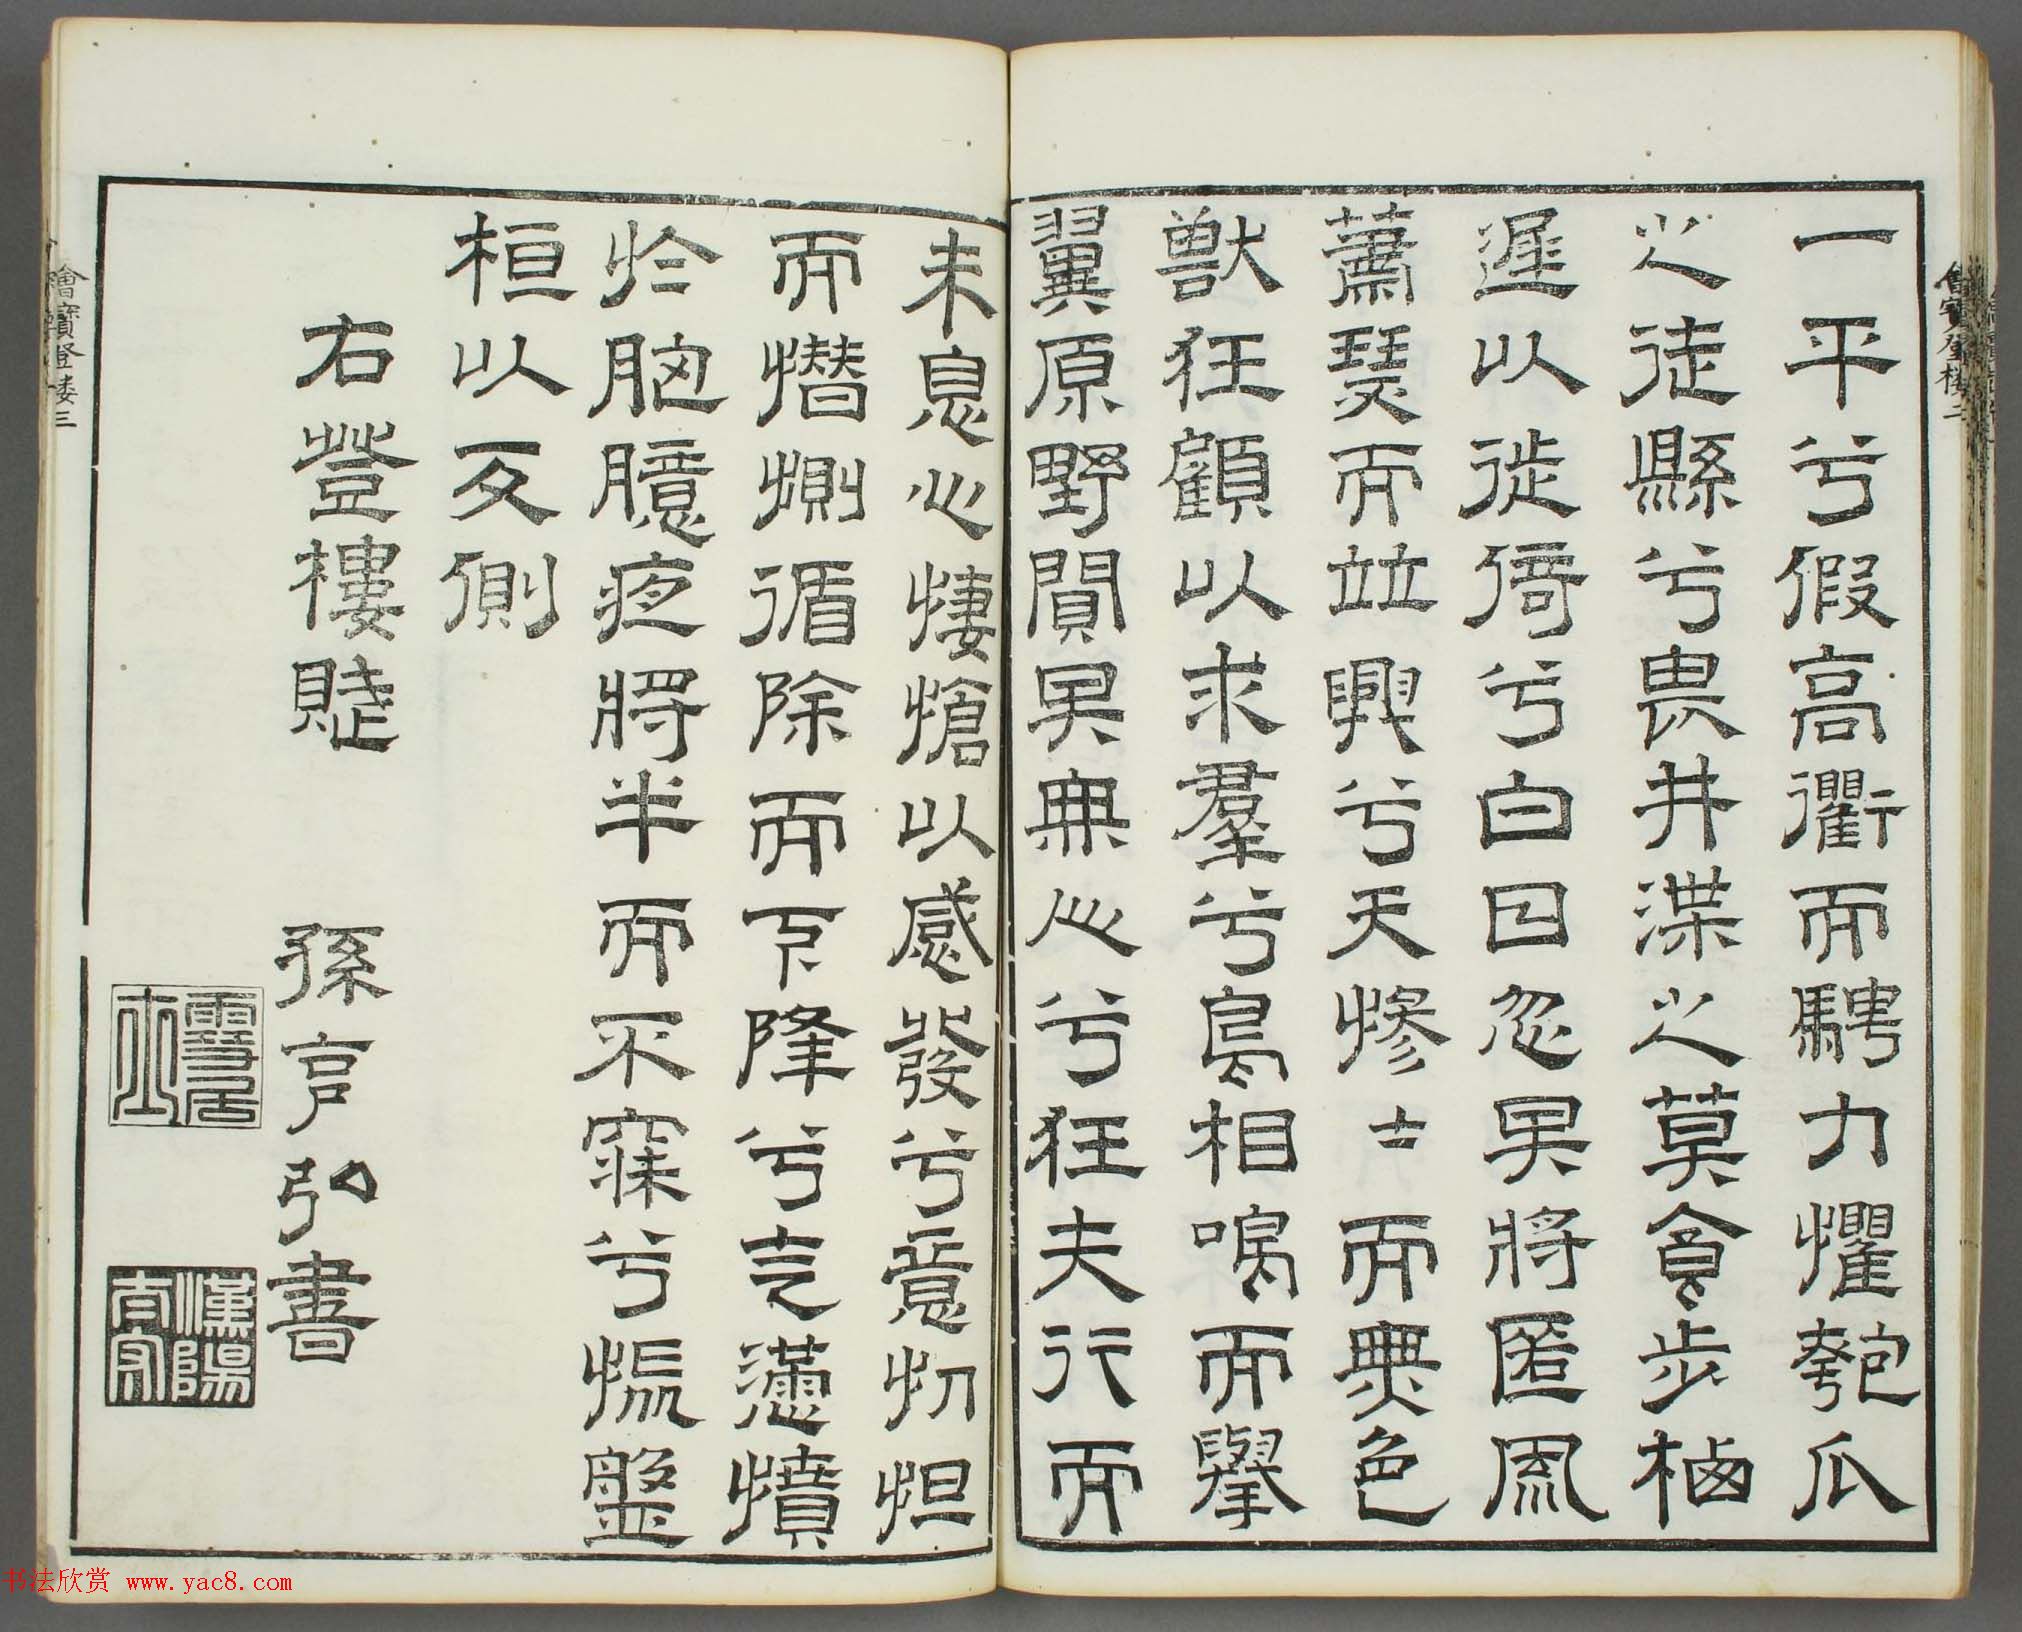 一平兮假高衢而騁力懼匏瓜
之徒縣兮畏井渫之莫食步棲
遲以徙倚兮白日忽其將匿風
蕭瑟而並興兮天慘〻而無色
獸狂顧以求羣兮鳥相鳴而舉
翼原野闃其無人兮征夫行而
未息心悽愴以感發兮意忉怛
而憯惻循除而下降兮气懣憤
於胸臆夜將半而不寐兮悵盤
桓以反側
右登樓賦
孫亨弘書
繪寶登楼三
书法欣赏 www.yac8.com